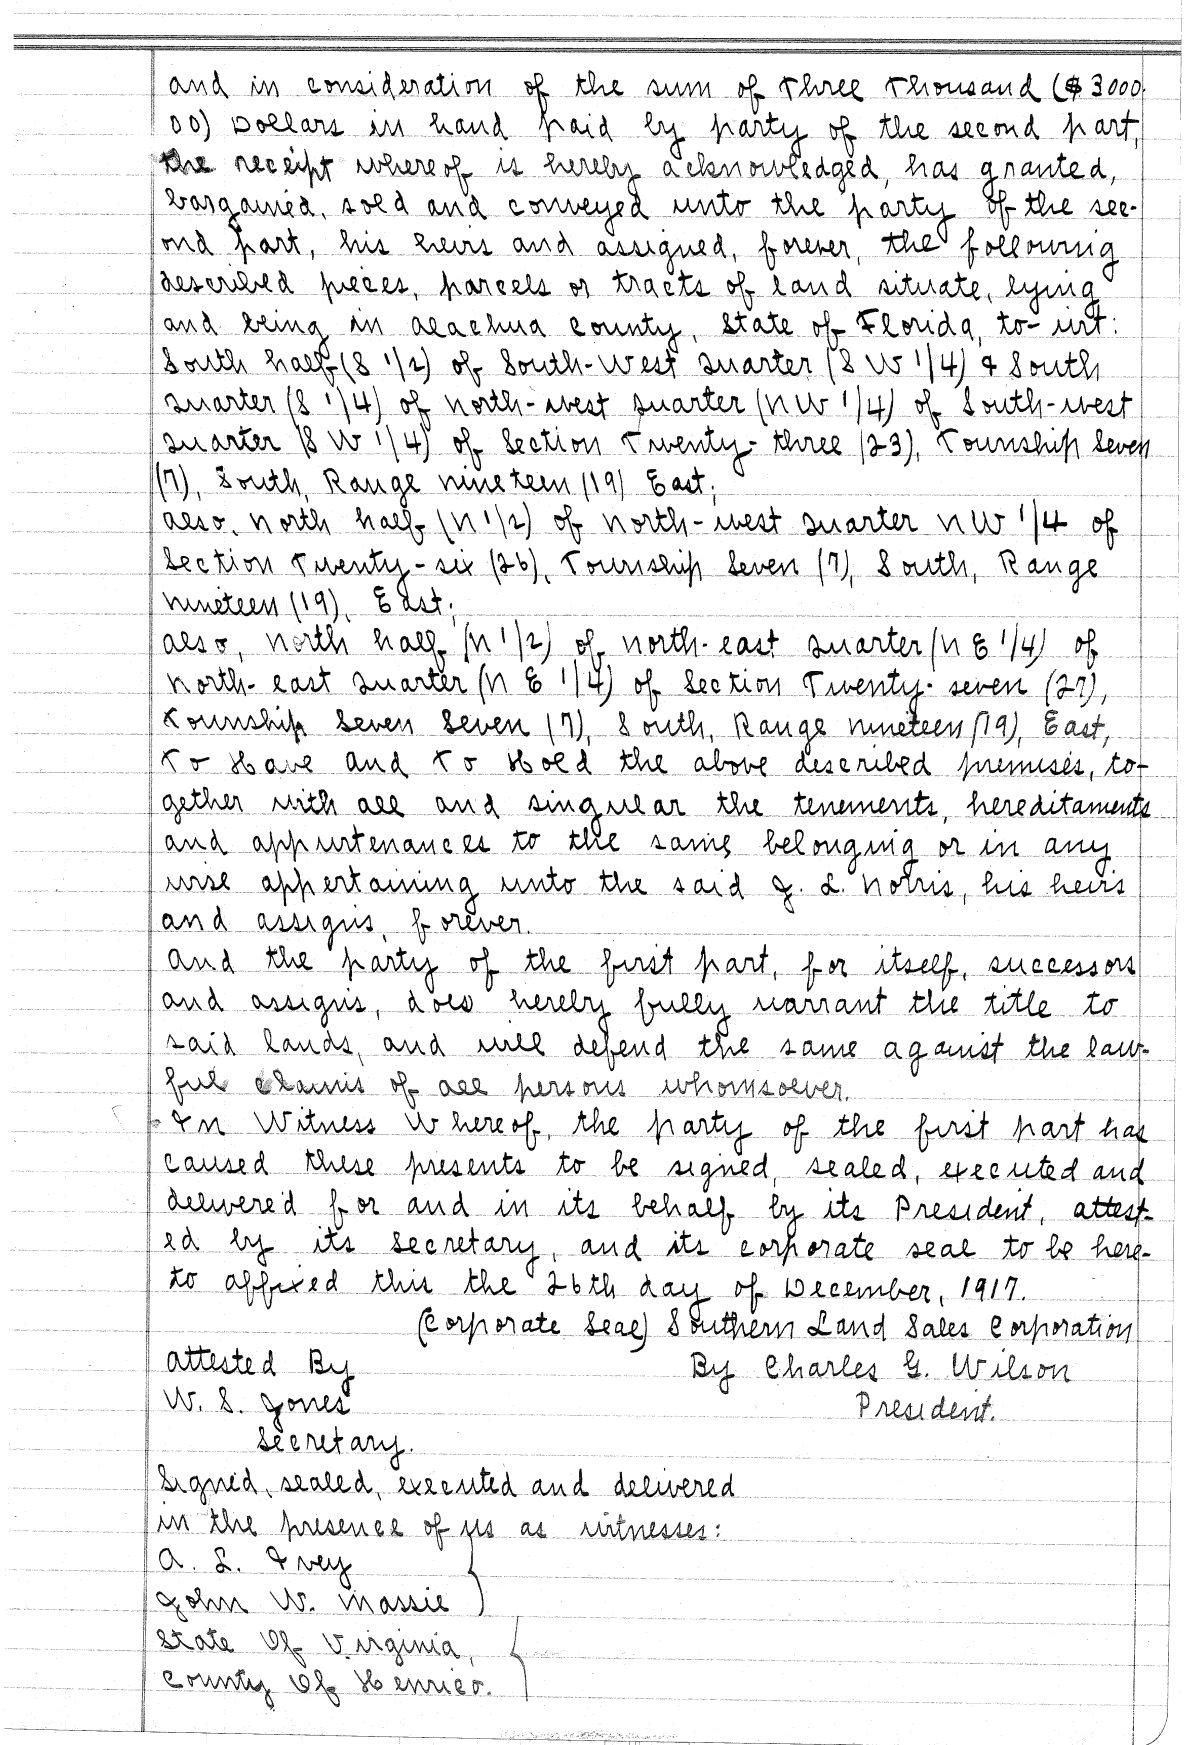 and in consideration of the sum of Three Thousand ($3000.
00) Dollars in hand paid by party of the second part,
the receipt whereof is hereby acknowledged, has granted,
bargained, sold and conveyed unto the party of the sec-
ond part, his heirs and assigned, forever, the following
described pieces, parcels or tracts of land situate, lying
and being in Alachua County, State of Florida, to-wit:
South half (S 1/2) of South-West Quarter (S W 1/4) & South
Quarter (S 1/4) of North-west Quarter (N W 1/4) of South-west
Quarter (S W 1/4) of Section Twenty-three (23), Township Seven
(7), South, Range nineteen (19) East;
also, North half (N 1/2) of North-west Quarter NW 1/4 of
Section Twenty-six (26), Township Seven (7), South, Range
nineteen (19), East;
also, North half (N 1/2) of North-east Quarter (N E 1/4) of
North-east Quarter (N E 1/4) of Section Twenty-seven (27),
Township Seven Seven (7), South, Range nineteen (19), East,
To Have and To Hold the above described premises, to-
gether with all and singular the tenements, hereditaments
and appurtenances to the same belonging or in any
wise appertaining unto the said J. L. Norris, his heirs
and assigns, forever.
And the party of the first part, for itself, successors
and assigns, does hereby fully warrant the title to
said lands, and will defend the same against the law-
ful claims of all persons whomsoever.
In Witness Whereof, the party of the first part has
caused these presents to be signed, sealed, executed and
delivered for and in its behalf by its President, attest-
ed by its Secretary, and its corporate seal to be here-
to affixed this the 26th day of December, 1917.
(Corporate Seal) Southern Land Sales Corporation
Attested By By Charles G. Wilson
W. S. Jones President.
Secretary.
Signed, sealed, executed and delivered
in the presence of us as witnesses:
A. L. Ivey
John W. Massie )
State Of Virginia,
County Of Henrico.